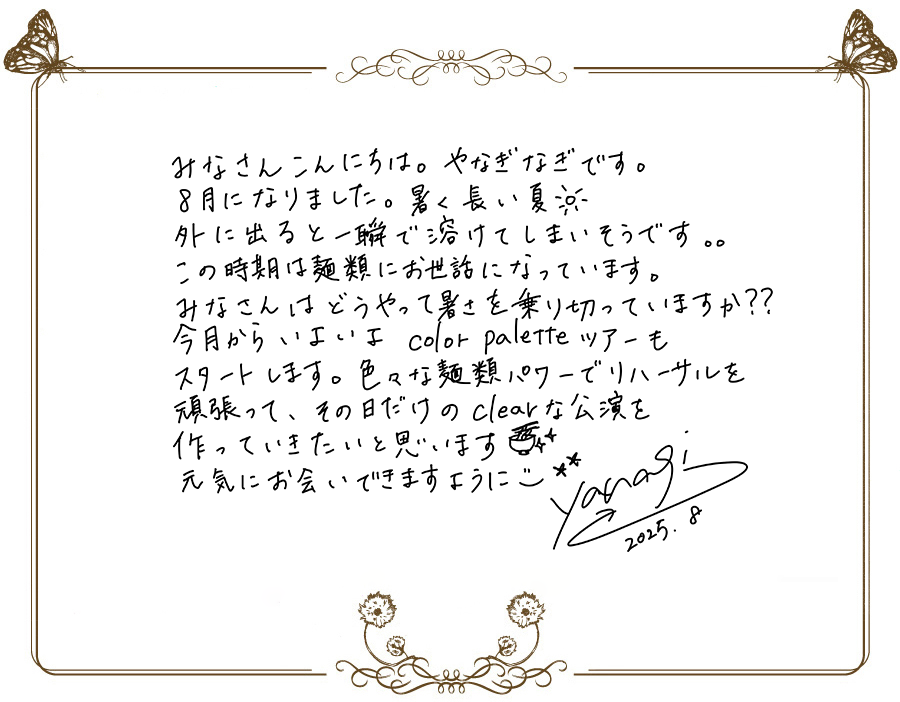 みなさんこんにちは。やなぎなぎです。
8月になりました。暑く長い夏
外に出ると一瞬で溶けてしまいそうです。。
この時期は麺類にお世話になっています。
みなさんはどうやって暑さを乗り切っていますか??
今月からいよいよ color paletteツアーも
スタートします。色々な麺類パワーでリハーサルを
頑張って、その日だけのclearな公演を
作っていきたいと思います
元気にお会いできますように
yanagi
2025.8